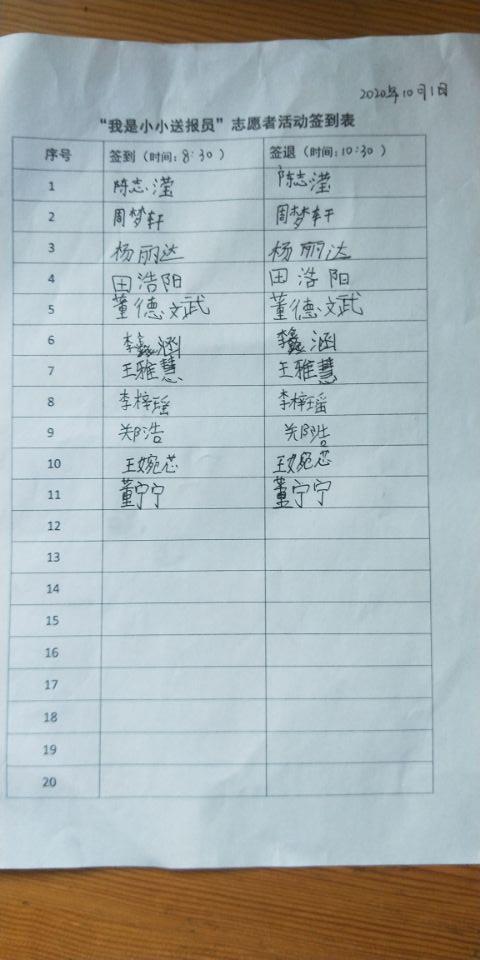 2020年10月1日
“我是小小送报员”志愿者活动签到表
序号 签到（时间：8:30） 签退（时间：10:30）
1 陈志滢 陈志滢
2 周梦轩 周梦轩
3 杨丽达 杨丽达
4 田浩阳 田浩阳
5 董德文武 董德文武
6 李鑫涵 李鑫涵
7 王雅慧 王雅慧
8 李梓瑶 李梓瑶
9 郑浩 郑浩
10 王婉芯 王婉芯
11 董宁宁 董宁宁
12
13
14
15
16
17
18
19
20